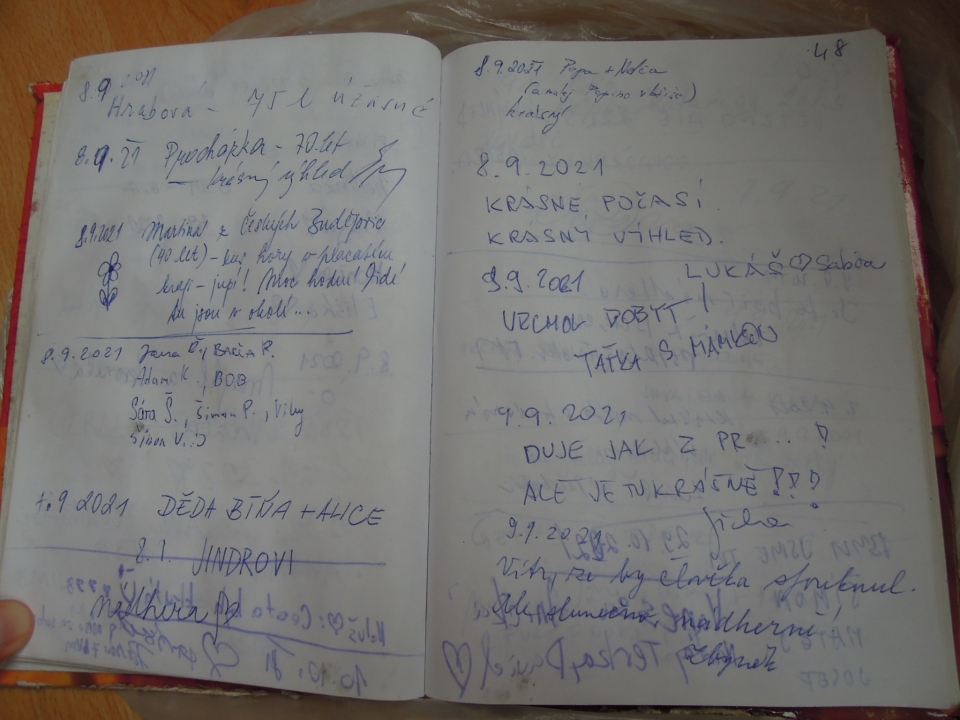 8.9 2021
Hrabová - 75 l úžasné
8.9.21 Procházka - 70 let
- krásný výhled
8.9.2021 Martina z Českých Budějovic
(40 let) - kus hory v placatém
kraji - jupí! Moc hodní lidé
tu jsou v okolí...
8.9.2021 Jana
Adam K., BOB
Sára Š., Šimon P., Viky
Šimon V. :)
7.9 2021 DĚDA BÍŇA + ALICE
8.9. JINDROVI
Nádhera
48
8.9.2021 Pepa +
krásný
8.9.2021
KRÁSNÉ POČASÍ
KRÁSNÝ VÝHLED.
LUKÁŠ ♡ Sabča
9.9. 2021
VRCHOL DOBYT!
TAŤKA S MAMKOU
9.9.2021
DUJE JAK Z PR....!
ALE JE TU KRÁSNĚ!!!
Jirka
9.9.2021
Vítr, že by člověka sfouknul.
Ale slunečno, nádherně
Zbyněk